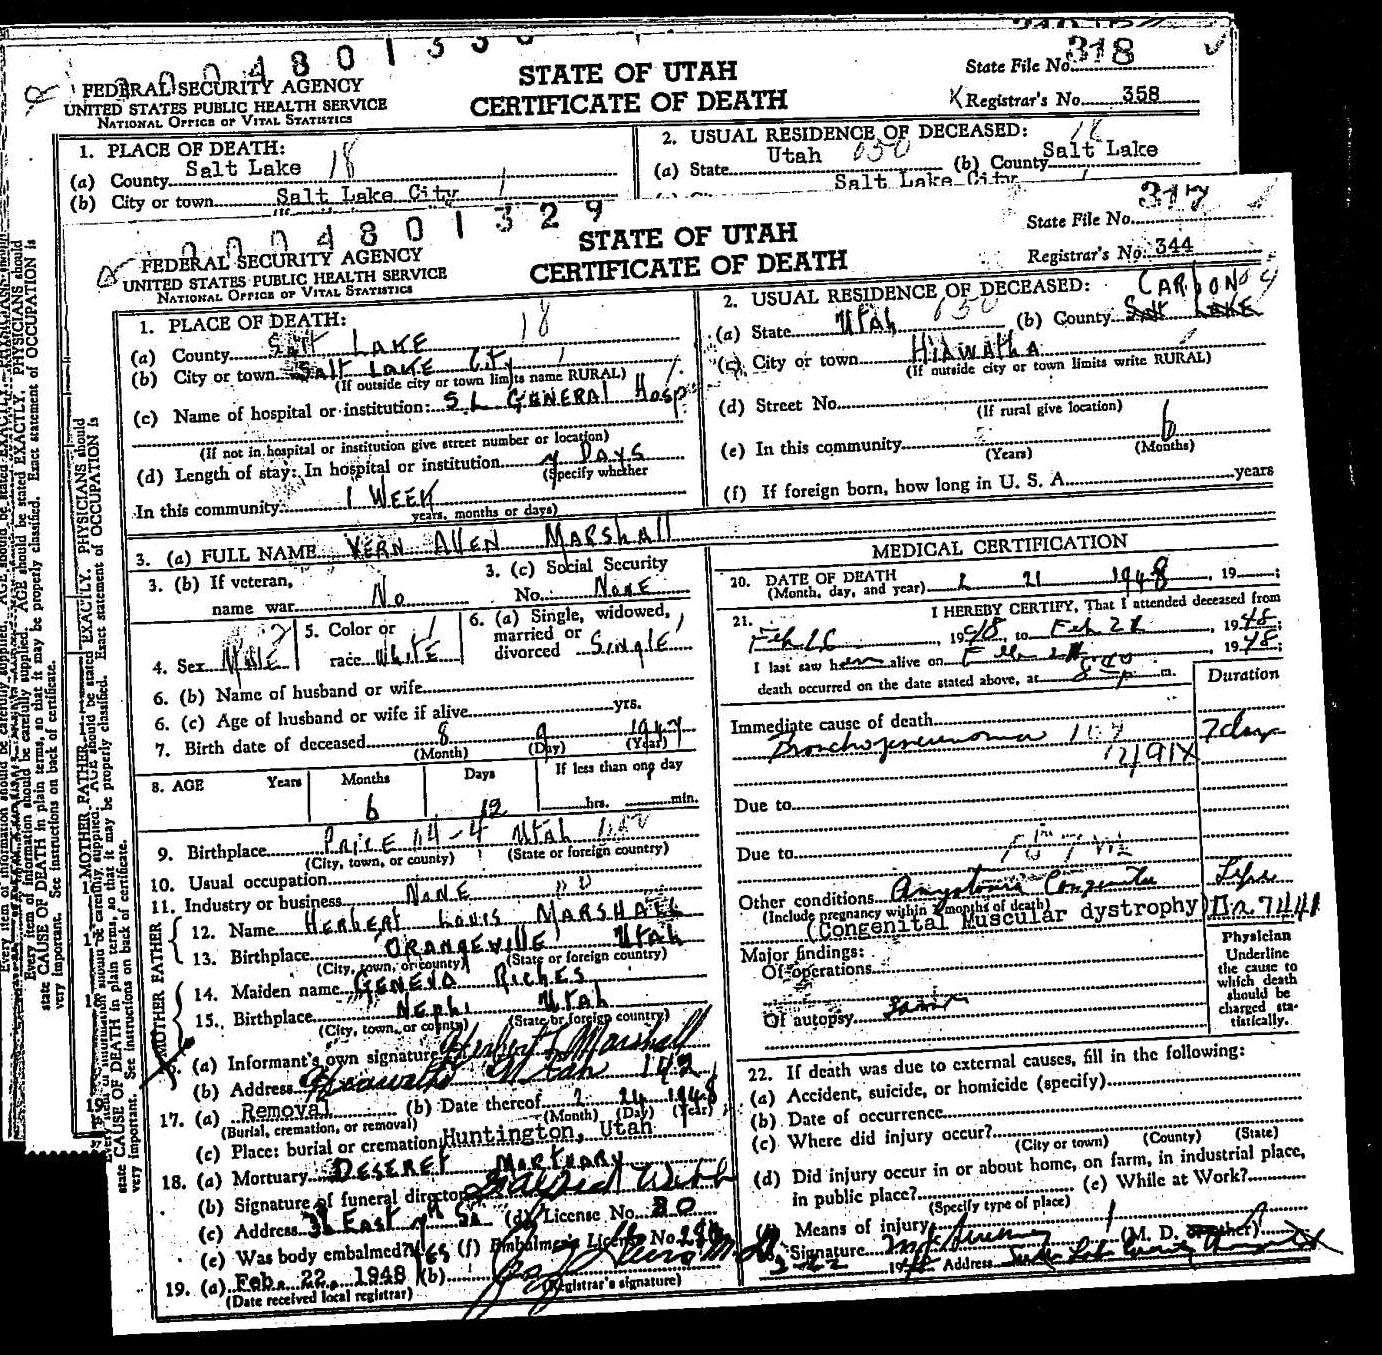 318
0004801330
FEDERAL SECURITY AGENCY
UNITED STATES PUBLIC HEALTH SERVICE
NATIONAL OFFICE OF VITAL STATISTICS
STATE OF UTAH
CERTIFICATE OF DEATH
State File No. 318
Registrar's No. 358
1. PLACE OF DEATH: 18
(a) County Salt Lake
(b) City or town Salt Lake City
2. USUAL RESIDENCE OF DECEASED: 18
(a) State Utah 050 (b) County Salt Lake
Salt Lake City
0004801329
FEDERAL SECURITY AGENCY
UNITED STATES PUBLIC HEALTH SERVICE
NATIONAL OFFICE OF VITAL STATISTICS
STATE OF UTAH
CERTIFICATE OF DEATH
State File No. 317
Registrar's No. 344
1. PLACE OF DEATH: 18
(a) County SALT LAKE
(b) City or town SALT LAKE City
(If outside city or town limits name RURAL)
(c) Name of hospital or institution: S L GENERAL Hosp
(If not in hospital or institution give street number or location)
(d) Length of stay: In hospital or institution 7 DAYS
(Specify whether
In this community 1 WEEK
years, months or days)
2. USUAL RESIDENCE OF DECEASED: CARBON 04
(a) State UTAH 050 (b) County SALT LAKE
(c) City or town HIAWATHA
(If outside city or town limits write RURAL)
(d) Street No.
(If rural give location)
(e) In this community 6
(Years) (Months)
(f) If foreign born, how long in U. S. A. years
3. (a) FULL NAME VERN ALLEN MARSHALL
3. (b) If veteran,
name war No
3. (c) Social Security
No. NONE
4. Sex MALE
5. Color or
race WHITE
6. (a) Single, widowed,
married or
divorced SINGLE
6. (b) Name of husband or wife
6. (c) Age of husband or wife if alive yrs.
7. Birth date of deceased 8 9 1947
(Month) (Day) (Year)
8. AGE Years Months Days If less than one day
6 12 hrs. min.
9. Birthplace PRICE 04-4 UTAH
(City, town, or county) (State or foreign country)
10. Usual occupation
11. Industry or business NONE
FATHER
12. Name HERBERT LOUIS MARSHALL
13. Birthplace ORANGEVILLE UTAH
(City, town, or county) (State or foreign country)
MOTHER
14. Maiden name GENEVA RICHES
15. Birthplace NEPHI UTAH
(City, town, or county) (State or foreign country)
(a) Informant's own signature Herbert L Marshall
(b) Address Hiawatha Utah 142
17. (a) Removal (b) Date thereof 2 24 1948
(Burial, cremation, or removal) (Month) (Day) (Year)
(c) Place: burial or cremation Huntington, Utah
18. (a) Mortuary DESERET MORTUARY
(b) Signature of funeral director Webb
(c) Address 36 East 7th So (d) License No. 80
(e) Was body embalmed? YES (f) Embalmer's License No.
19. (a) Feb. 22, 1948 (b)
(Date received local registrar) (Registrar's signature)
MEDICAL CERTIFICATION
20. DATE OF DEATH
(Month, day, and year) 2 21 1948, 19 ;
21. I HEREBY CERTIFY, That I attended deceased from
Feb 16, 1948, to Feb 21, 1948;
I last saw him alive on Feb 21, 1948;
death occurred on the date stated above, at 8 40 p m.
Duration
Immediate cause of death
Bronchopneumonia 107 7 days
Due to
Due to
Other conditions Amyotonia Congenita Life
(Include pregnancy within 3 months of death)
(Congenital Muscular dystrophy)
Major findings:
Of operations
Of autopsy same
Physician
Underline
the cause to
which death
should be
charged sta-
tistically.
22. If death was due to external causes, fill in the following:
(a) Accident, suicide, or homicide (specify)
(b) Date of occurrence
(c) Where did injury occur?
(City or town) (County) (State)
(d) Did injury occur in or about home, on farm, in industrial place,
in public place? (e) While at Work?
(Specify type of place)
Means of injury
Signature (M. D. or other)
2-22 1948 Address Salt Lake County
Every item of information should be carefully supplied. AGE should be stated EXACTLY. PHYSICIANS should
state CAUSE OF DEATH in plain terms, so that it may be properly classified. Exact statement of OCCUPATION is
very important. See instructions on back of certificate.